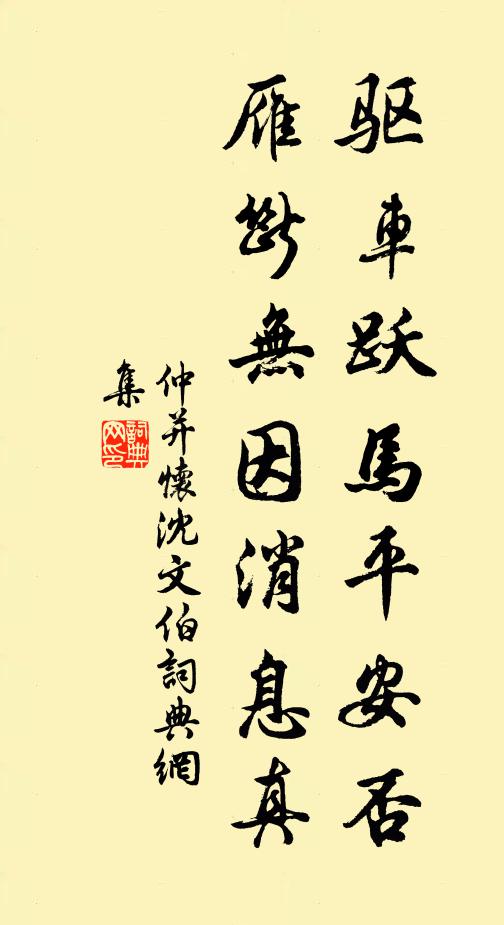 驱車跃馬平安否
雁断無因消息真
仲并懷沈文伯詞典網
集
詞典
网印